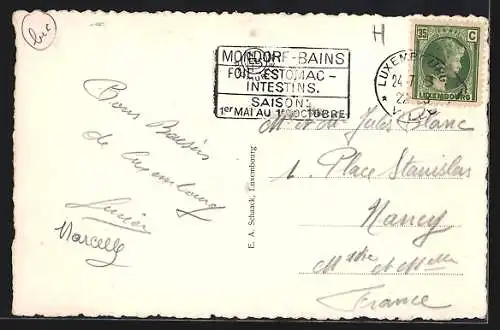 Luc
H
MONDORF-BAINS
FOIE-ESTOMAC-
INTESTINS.
SAISON:
1er MAI AU 1er OCTOBRE
LUXEMBOURG
24-7
22
35 C
LUXEMBOURG
Bons Baisers
de Luxembourg
Lucien
Marcelle
E. A. Schaack, Luxembourg
M. et Me Jules Blanc
1. Place Stanislas
Nancy
Mthe et Mlle
France